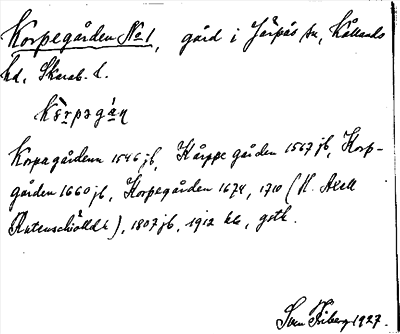 Korpegården No 1, gård i Järpås sn, Kållands
hd, Skarab. l.
kò̀rpəgán
Korpagårdenn 1546 jb, Kårppe gården 1567 jb, Korp-
gården 1660 jb, Korpegården 1674, 1710 (H. Axell
), 1807 jb, 1912 kb, geth.
Sven Friberg 1927.